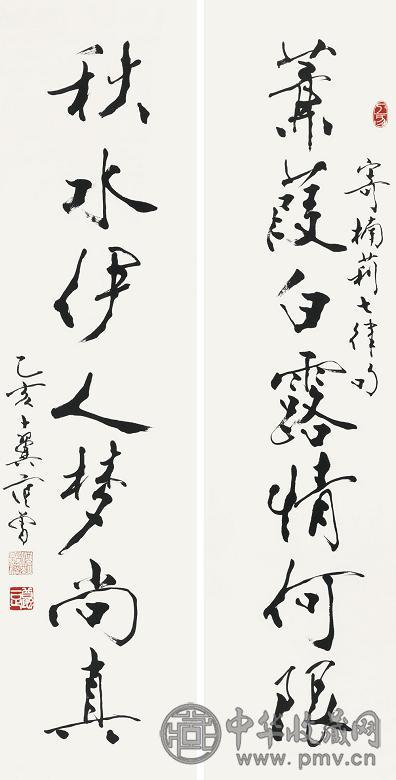 寄楠莉七律句
蒹葭白露情何限
秋水伊人梦尚真
乙亥十翼范曾
中华收藏网
www.pmv.cn